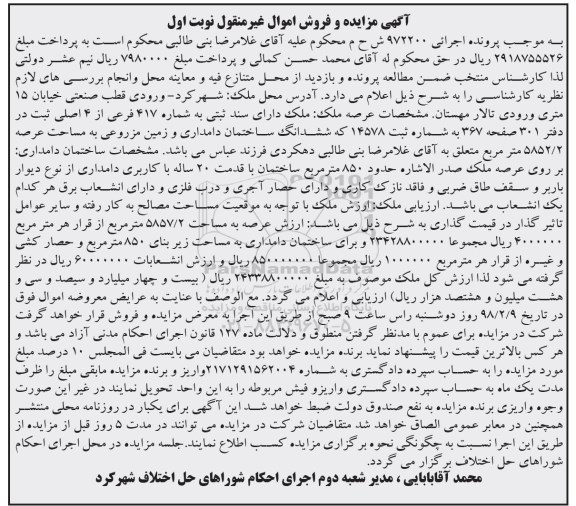 آگهی مزایده و فروش اموال غیرمنقول نوبت اول
بـه موجـب پرونده اجرائی ۹۷۲۲۰۰ ش ح م محکوم علیه آقای غلامرضا بنی طالبی محکوم است به پرداخت مبلغ
۲۹۱۸۷۵۵۵۲۶ ریال در حق محکوم له آقای محمد حسن کمالی و پرداخت مبلغ ۷۹۸۰۰۰۰ ریال نیم عشر دولتی
لذا کارشناس منتخب ضمـن مطالعه پرونده و بازدید از محـل متنازع فیه و معاینه محل وانجام بررسی های لازم
نظریه کارشناسـی را به شرح ذیل اعلام می دارد. آدرس محل ملک: شهرکرد- ورودی قطب صنعتی خیابان ۱۵
متری ورودی تالار مهستان. مشخصات عرصه ملک: ملک دارای سند ثبتی به شماره ۴۱۷ فرعی از ۴ اصلی ثبت در
دفتر ۳۰۱ صفحه ۳۶۷ به شماره ثبت ۱۴۵۷۸ که ششدانگ ساختمان دامداری و زمین مزروعی به مساحت عرصه
۵۸۵۲/۲ متر مربع متعلق به آقای غلامرضا بنی طالبی دهکردی فرزند عباس می باشد. مشخصات ساختمان دامداری:
بر روی عرصه ملک صدر الاشاره حدود ۸۵۰ مترمربع ساختمان با قدمت ۲۰ ساله با کاربری دامداری از نوع دیوار
باربر و سـقف طاق ضربی و فاقد نازک کاری و دارای حصار آجری و درب فلزی و دارای انشـعاب برق هر کدام
یک انشـعاب می باشـد. ارزیابی ملک: ارزش ملک با توجه به موقعیت مساحت مصالح به کار رفته و سایر عوامل
تاثیر گذار در قیمت گذاری به شـرح ذیل می باشـند: ارزش عرصه به مساحت ۵۸۵۷/۲ مترمربع از قرار هر متر مربع
۴۰۰۰۰۰۰ ریال مجموعا ۲۳۴۲۸۸۰۰۰۰۰ و برای ساختمان دامداری به مساحت زیر بنای ۸۵۰ مترمربع و حصار کشی
و غیـره از قرار هر مترمربع ۱۰۰۰۰۰۰ ریال مجموعا ۸۵۰۰۰۰۰۰۰ ریال و ارزش انشـعابات ۶۰۰۰۰۰۰۰ ریال در نظر
گرفته می شود لذا ارزش کل ملک موصوف به مبلغ ۲۴۳۳۸۸۰۰۰۰۰ ریال ( بیست و چهار میلیارد و سیصد و سی و
هشـت میلیون و هشتصد هزار ریال) ارزیابی و اعلام می گردد. مع الوصف با عنایت به عرایض معروضه اموال فوق
در تاریخ ۹۸/۲/۹ روز دوشنبه راس ساعت ۹ صبح از طریق این اجرا به معرض مزایده و فروش قرار خواهد گرفت
شرکت در مزایده برای عموم با مدنظر گرفتن منطوق و دلالت ماده ۱۲۷ قانون اجرای احکام مدنی آزاد می باشد و
هر کس بالاترین قیمت را پیشـنهاد نماید برنده مزایده خواهد بود متقاضیان می بایست فی المجلس ۱۰ درصد مبلغ
مورد مزایده را به حساب سپرده دادگستری به شماره ۲۱۷۱۲۹۱۵۶۲۰۰۴ واریز و برنده مزایده مابقی مبلغ را ظرف
مدت یک ماه به حساب سپرده دادگسـتری واریزو فیش مربوطه را به این واحد تحویل نمایند در غیر این صورت
وجوه واریزی برنده مزایده به نفع صندوق دولت ضبط خواهد شـد این آگهی برای یکبار در روزنامه محلی منتشـر
همچنین در معابر عمومی الصاق خواهد شد متقاضیان شرکت در مزایده می توانند در مدت ۵ روز قبل از مزایده از
طریق این اجرا نسـبت به چگونگی نحوه برگزاری مزایده کسـب اطلاع نمایند.جلسه مزایده در محل اجرای احکام
شوراهای حل اختلاف برگزار می گردد.
محمد آقابابایی ، مدیر شعبه دوم اجرای احکام شوراهای حل اختلاف شهرکرد